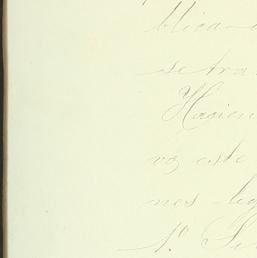 blica
se tra
Hacien
vos este
nes leg
1º Se